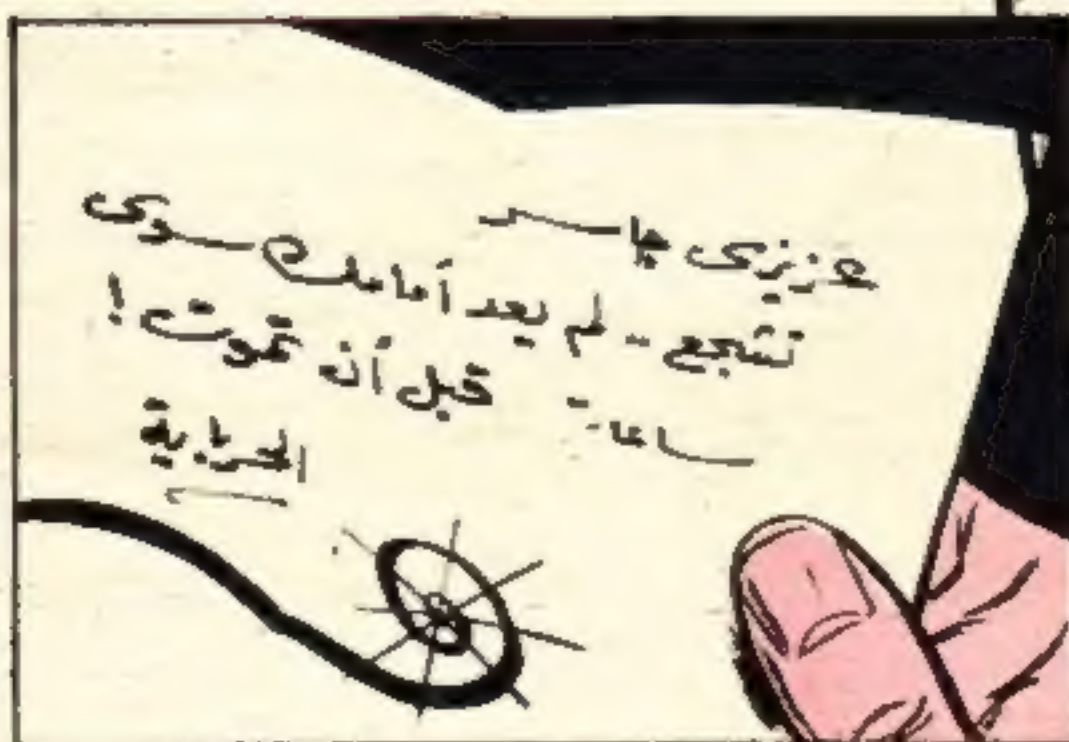 عزيزى چاس
تشجع - لم يعد أمامك سوى
ساعات قبل أن تموت !
الحرباية